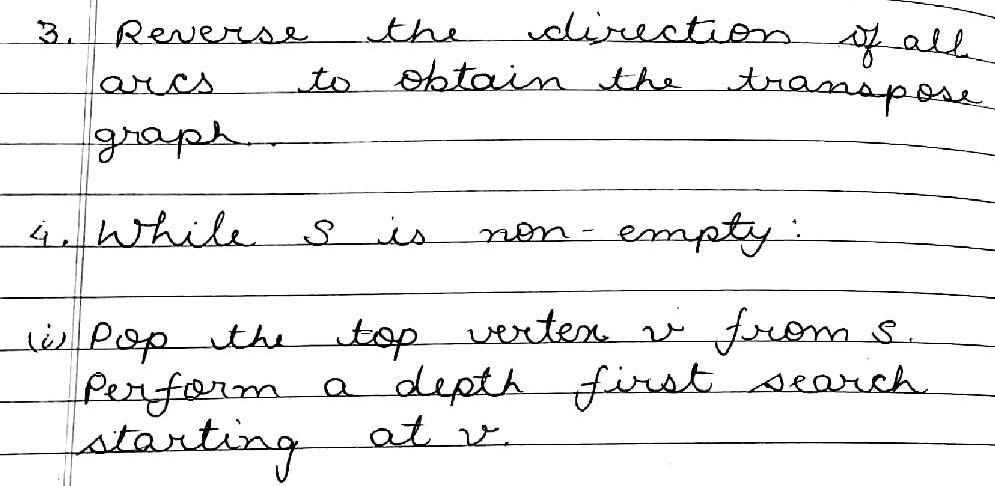 3. Reverse the direction of all
arcs to obtain the transpose
graph.
4. While S is non-empty:
(i) Pop the top vertex v from S.
Perform a depth first search
starting at v.